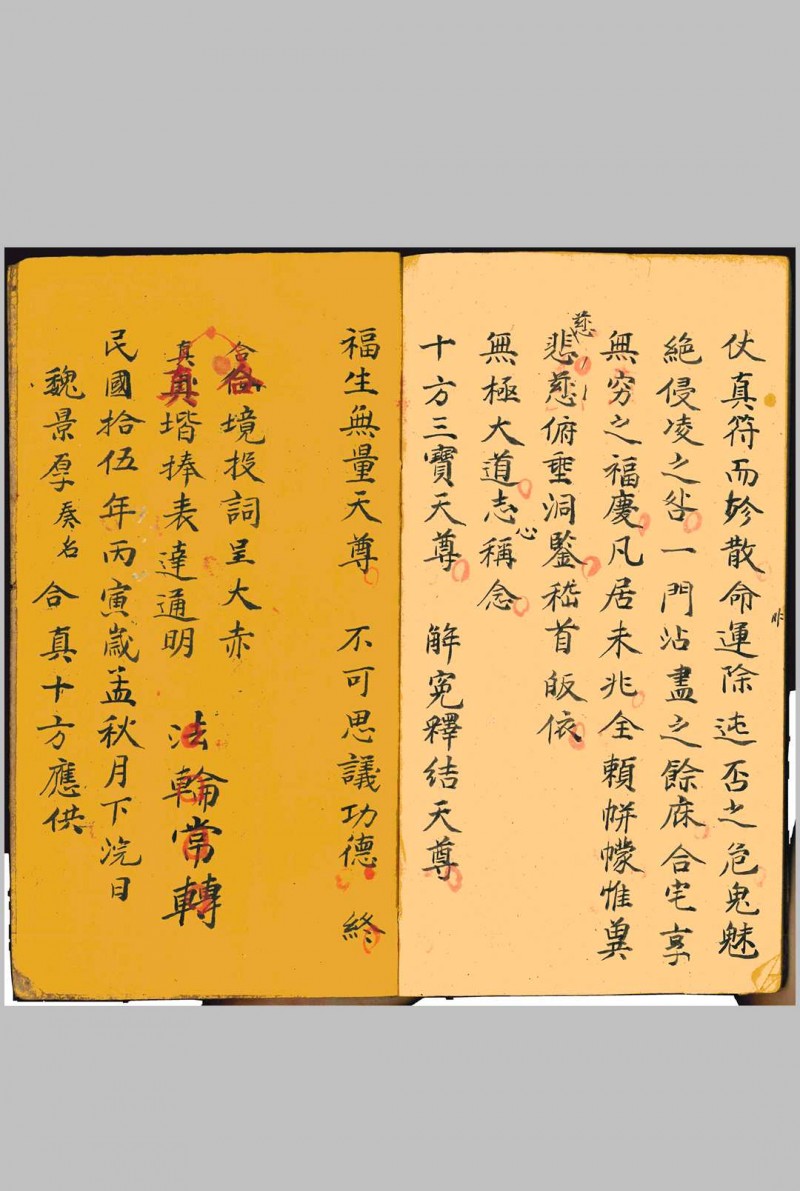 仗真符而妎散命運除迍否之危鬼魅
非
絕侵凌之咎一門沾盡之餘庥合宅享
無窮之福慶凡居未兆全賴帡幪惟兾
慈
悲慈俯垂洞鑒稽首皈依
無極大道志稱念
心
十方三寶天尊 解寃釋結天尊
福生無量天尊 不可思議功德 終
合
合境投詞呈大赤
真
真堦捧表達通明 法輪常轉
民國拾伍年丙寅歲孟秋月下浣日
魏景厚奏名 合真十方應供